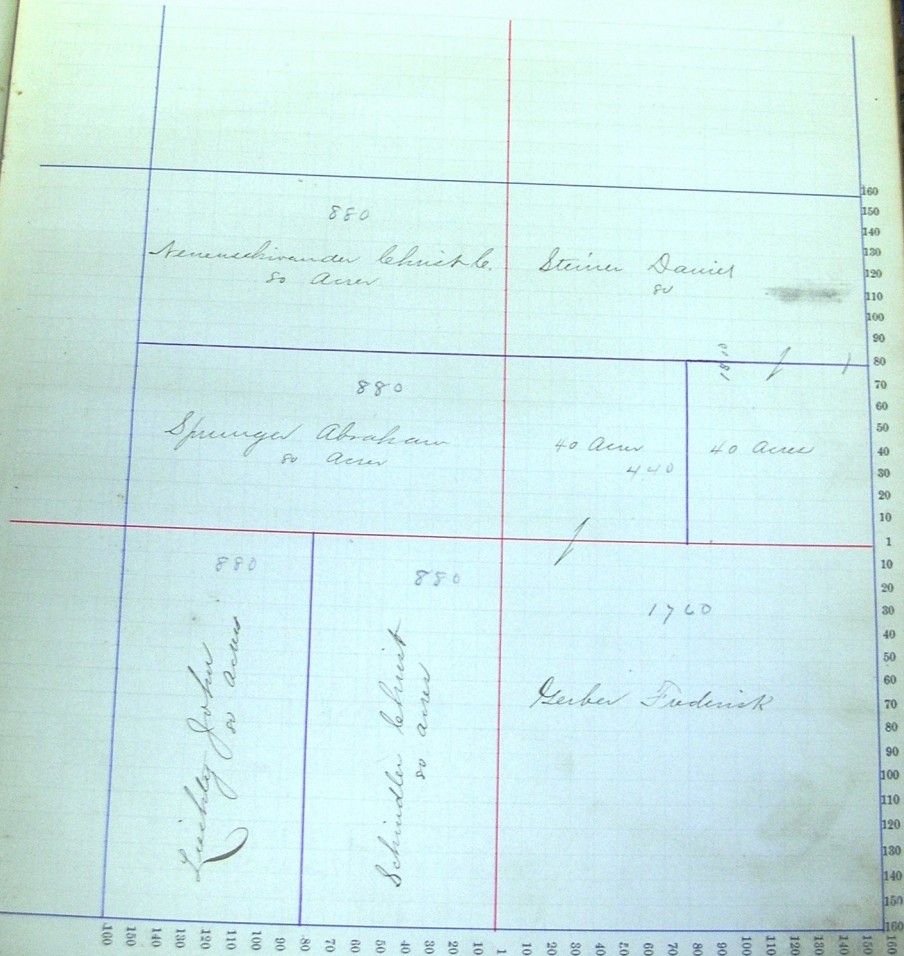 880
Neuenschwander Christ C.
80 Acres
Steiner Daniel
80
880
Sprunger Abraham
80 Acres
40 Acres
440
40 Acres
880
Liechty John
80 acres
880
Schindler Christ
80 acres
1760
Gerber Frederick
160
150
140
130
120
110
100
90
80
70
60
50
40
30
20
10
1
10
20
30
40
50
60
70
80
90
100
110
120
130
140
150
160
160 150 140 130 120 110 100 90 80 70 60 50 40 30 20 10 1 10 20 30 40 50 60 70 80 90 100 110 120 130 140 150 160